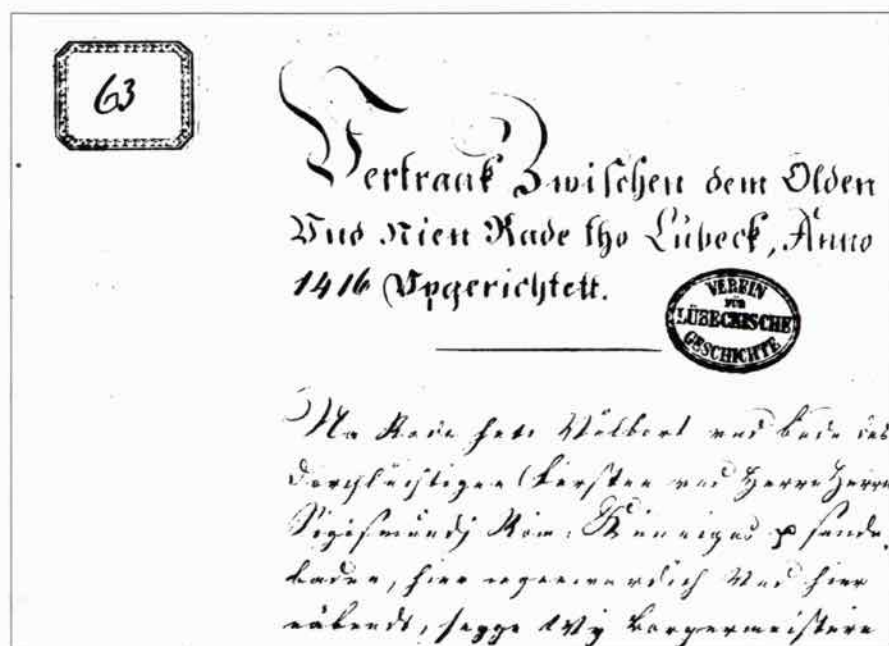 63
Vertraak Zwischen dem Olden
Vnd Nien Rade tho Lübeck, Anno
1416 Vpgerichtett.
VEREIN
FÜR
LÜBECKISCHE
GESCHICHTE
Na Rade hete Vulbort vnd bede des
Dorchlüchtigen Förften vnd Herrn Herrn
Sigismundj Röm: Könniges
baden, hier vnd hier
segge Wy Borgermeistere